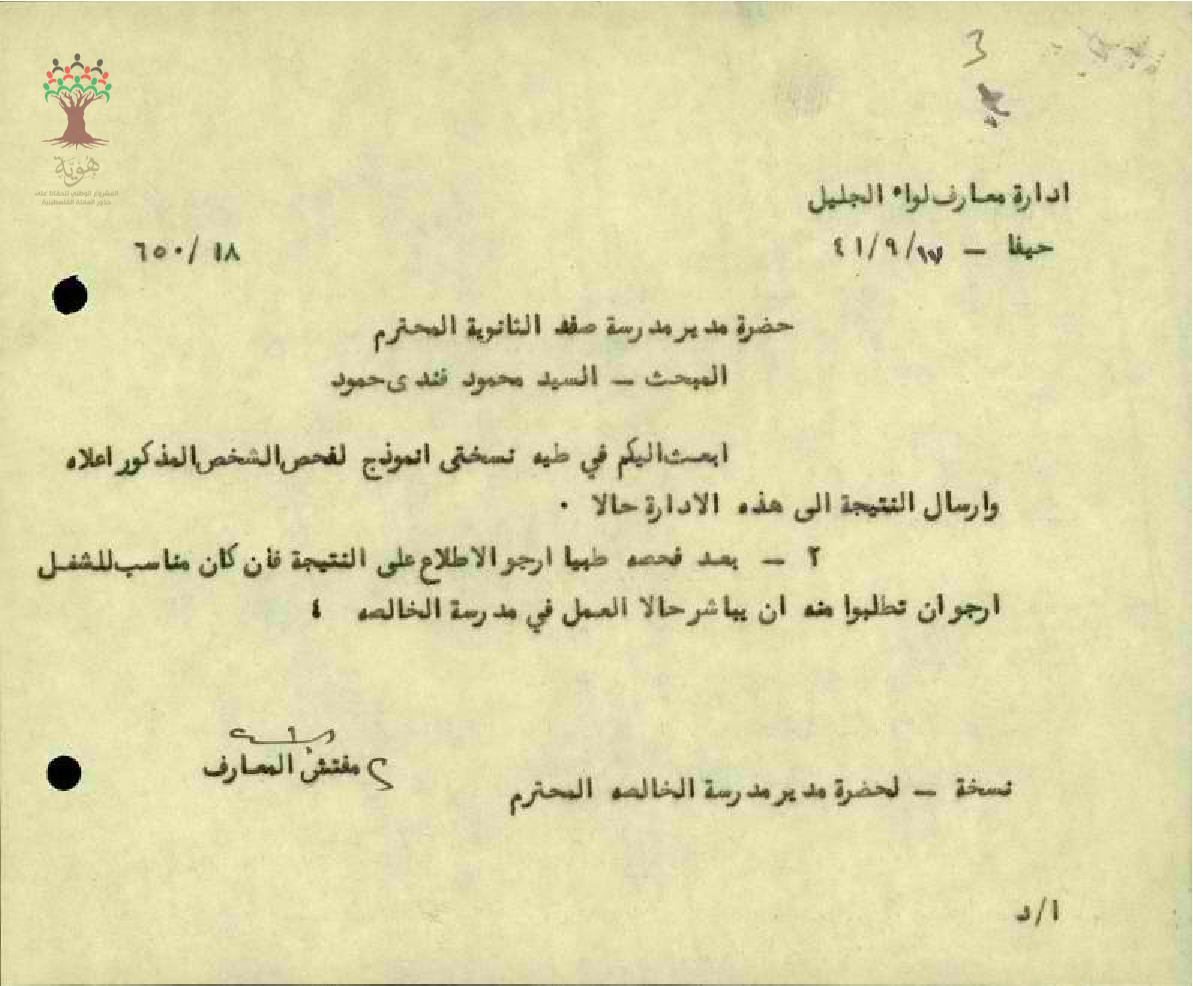 3
هوية
المشروع الوطني للحفاظ على
جذور العائلة الفلسطينية
ادارة معارف لواء الجليل
حيفا — ١٧/٩/٤١
١٨/٦٥٠
حضرة مدير مدرسة صفد الثانوية المحترم
المبحث — السيد محمود فندى حمود
ابعث اليكم في طيه نسختى انموذج لفحص الشخص المذكور اعلاه
وارسال النتيجة الى هذه الادارة حالا ٠
٢ — بعد فحصه طبيا ارجو الاطلاع على النتيجة فان كان مناسب للشغل
ارجو ان تطلبوا منه ان يباشر حالا العمل في مدرسة الخالصه ٤
مفتش المعارف
نسخة — لحضرة مدير مدرسة الخالصه المحترم
ا/د